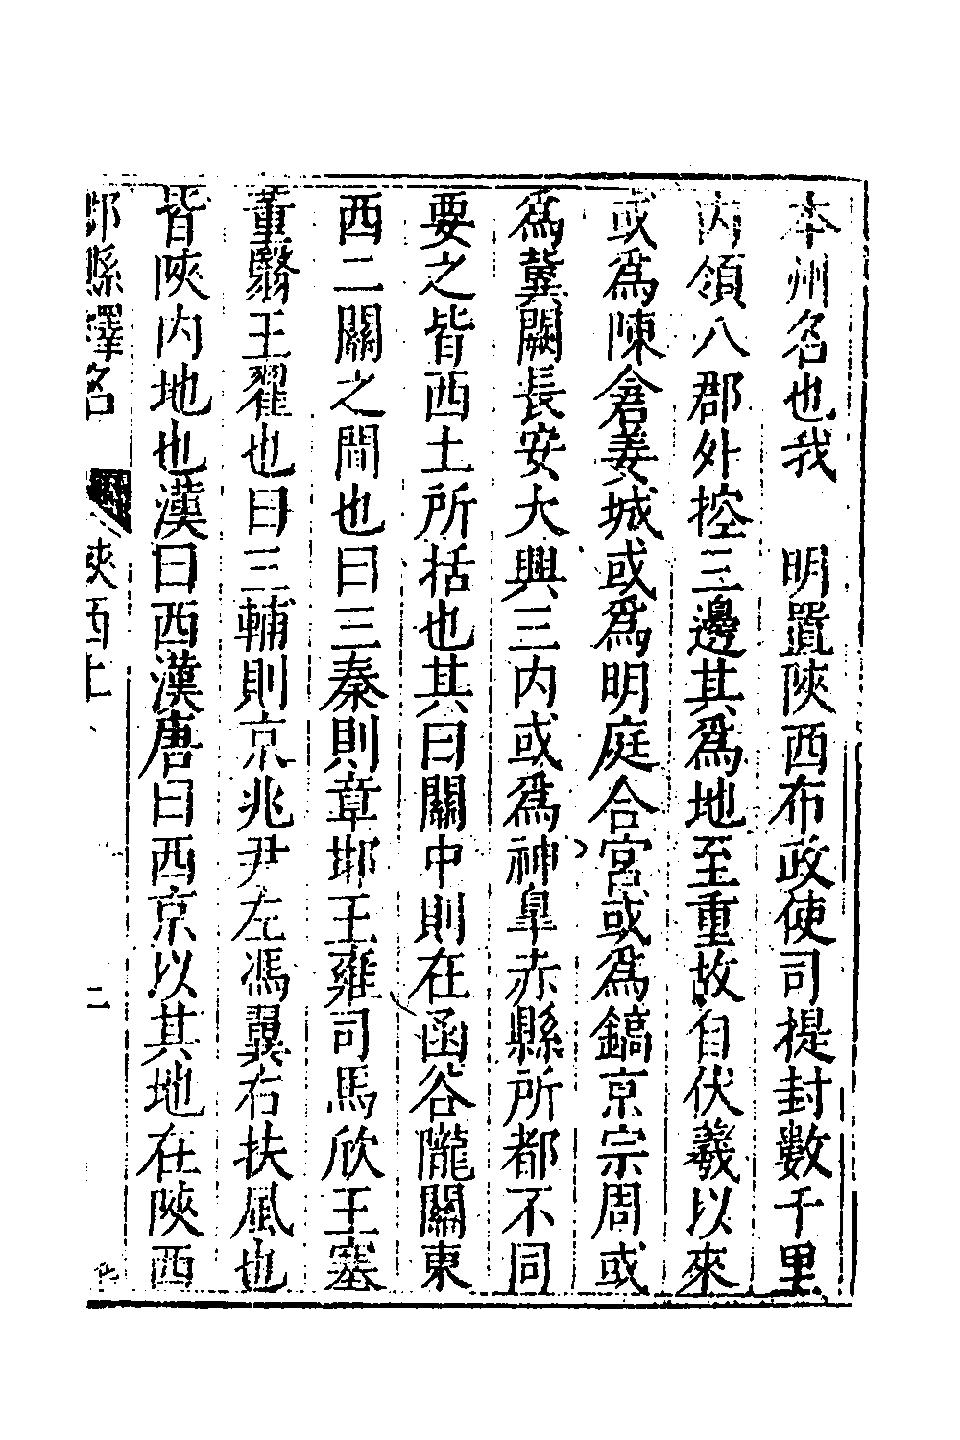 本州名也我　明置陝西布政使司提封數千里
内領八郡外控三邊其爲地至重故自伏羲以來
或爲陳倉姜城或爲明庭合宮或爲鎬京宗周或
爲冀闕長安大興三内或爲神臯赤縣所都不同
要之皆西土所括也其曰關中則在函谷隴關東
西二關之間也曰三秦則章邯王雍司馬欣王塞
董翳王翟也曰三輔則京兆尹左馮翼右扶風也
皆陝内地也漢曰西漢唐曰西京以其地在陝西
郡縣釋名　陝西上　二